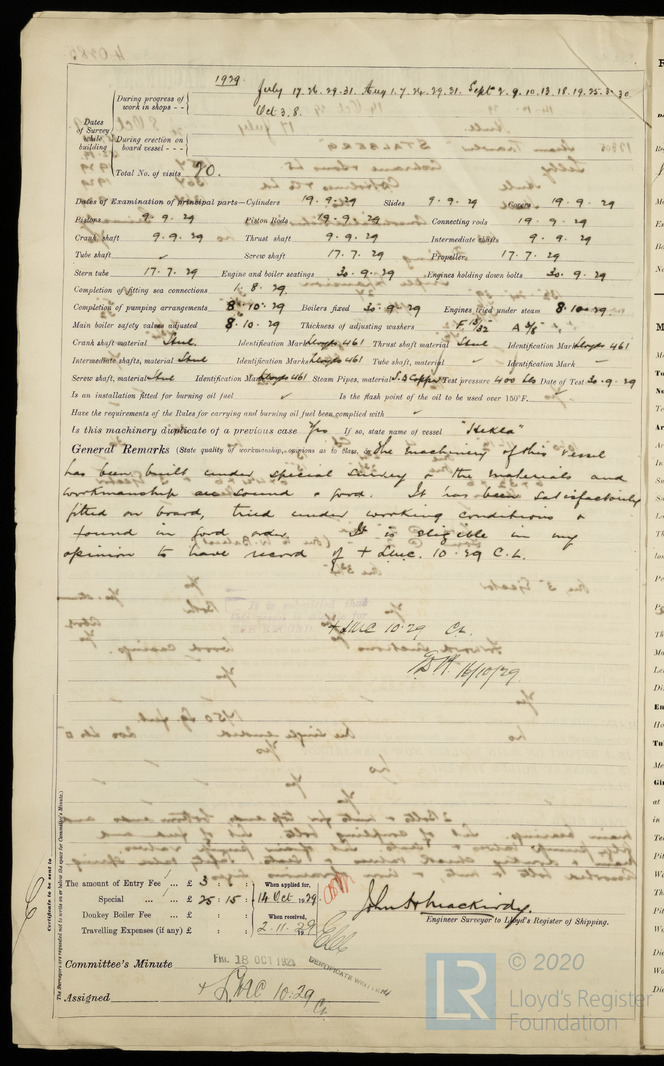 1929
During progress of work in shops - - July 17. 26. 29. 31. Aug 1. 7. 24. 29. 31. Sept 2. 9. 10. 13. 18. 19. 25. 30
Oct 3. 8.
Dates of Survey while building
During erection on board vessel - - -
Total No. of visits 20.
Dates of Examination of principal parts—Cylinders 19. 9. 29 Slides 9. 9. 29 Covers 19. 9. 29
Pistons 9. 9. 29 Piston Rods 19. 9. 29 Connecting rods 19. 9. 29
Crank shaft 9. 9. 29 Thrust shaft 9. 9. 29 Intermediate shafts 9. 9. 29
Tube shaft ✓ Screw shaft 17. 7. 29 Propeller 17. 7. 29
Stern tube 17. 7. 29 Engine and boiler seatings 30. 9. 29 Engines holding down bolts 30. 9. 29
Completion of fitting sea connections 1. 8. 29
Completion of pumping arrangements 8. 10. 29 Boilers fixed 30. 9. 29 Engines tried under steam 8. 10. 29
Main boiler safety valves adjusted 8. 10. 29 Thickness of adjusting washers F 13/32 A 3/8
Crank shaft material Steel Identification Mark Lloyds 461 Thrust shaft material Steel Identification Mark Lloyds 461
Intermediate shafts, material Steel Identification Marks Lloyds 461 Tube shaft, material ✓ Identification Mark ✓
Screw shaft, material Steel Identification Mark Lloyds 461 Steam Pipes, material S.D Copper Test pressure 400 lbs Date of Test 30. 9. 29
Is an installation fitted for burning oil fuel ✓ Is the flash point of the oil to be used over 150°F.
Have the requirements of the Rules for carrying and burning oil fuel been complied with ✓
Is this machinery duplicate of a previous case Yes If so, state name of vessel "Hekla"
General Remarks (State quality of workmanship, opinions as to class, &c. The machinery of this vessel
has been built under special survey & the materials and
workmanship are sound & good. It has been satisfactorily
fitted on board, tried under working conditions &
found in good order. It is eligible in my
opinion to have record of + LMC. 10. 29 C.L.
+ LMC 10. 29 CL.
16/10/29.
Certificate to be sent to
(The Surveyors are requested not to write on or below the space for Committee's Minute.)
The amount of Entry Fee ... £ 3 : 
Special ... £ 25 : 15 :
Donkey Boiler Fee ... £ : :
Travelling Expenses (if any) £ : :
When applied for, 14 Oct 1929
When received, 2. 11. 29
Engineer Surveyor to Lloyd's Register of Shipping.
Committee's Minute FRI. 18 OCT 1929
CERTIFICATE WRITTEN
Assigned + LMC 10. 29 CL
LR
© 2020
Lloyd's Register
Foundation